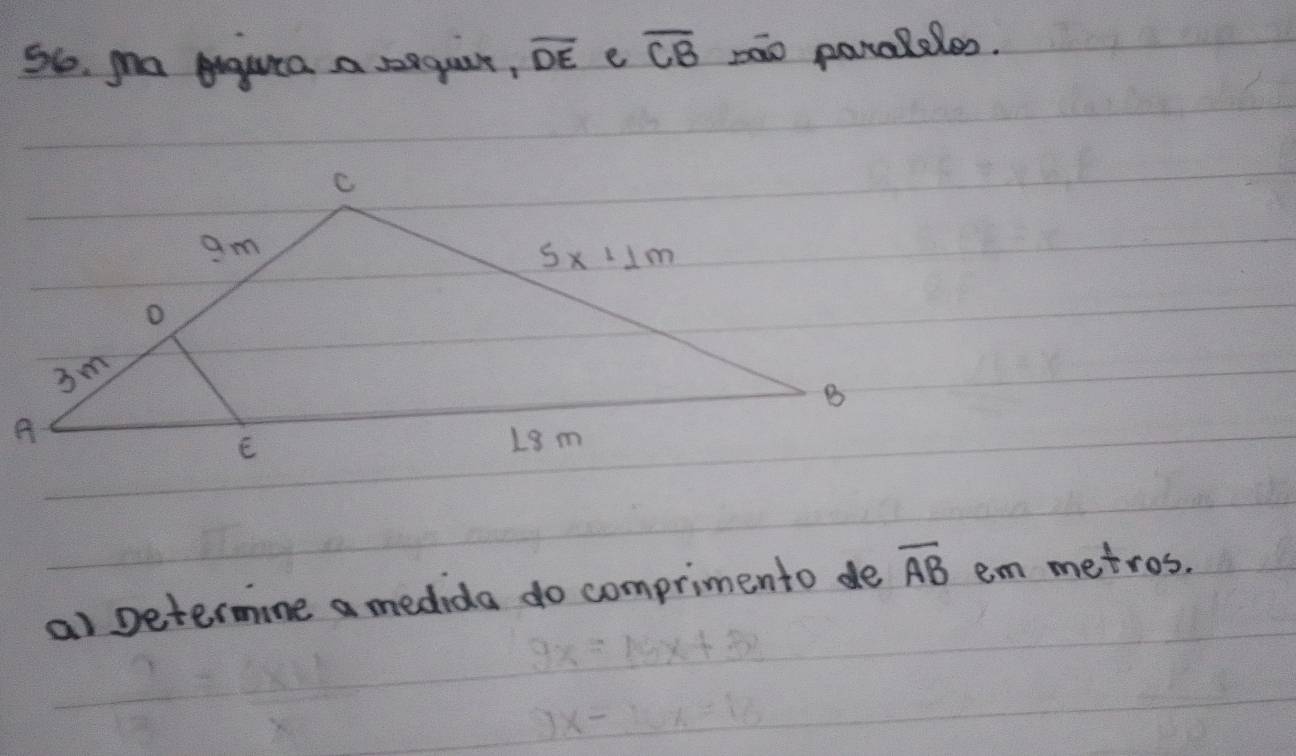 56. Na figura a seguir, DE e CB são paralelos.
C
9m
5x+1m
D
3m
A
B
E
18 m
a) Determine a medida do comprimento de AB em metros.